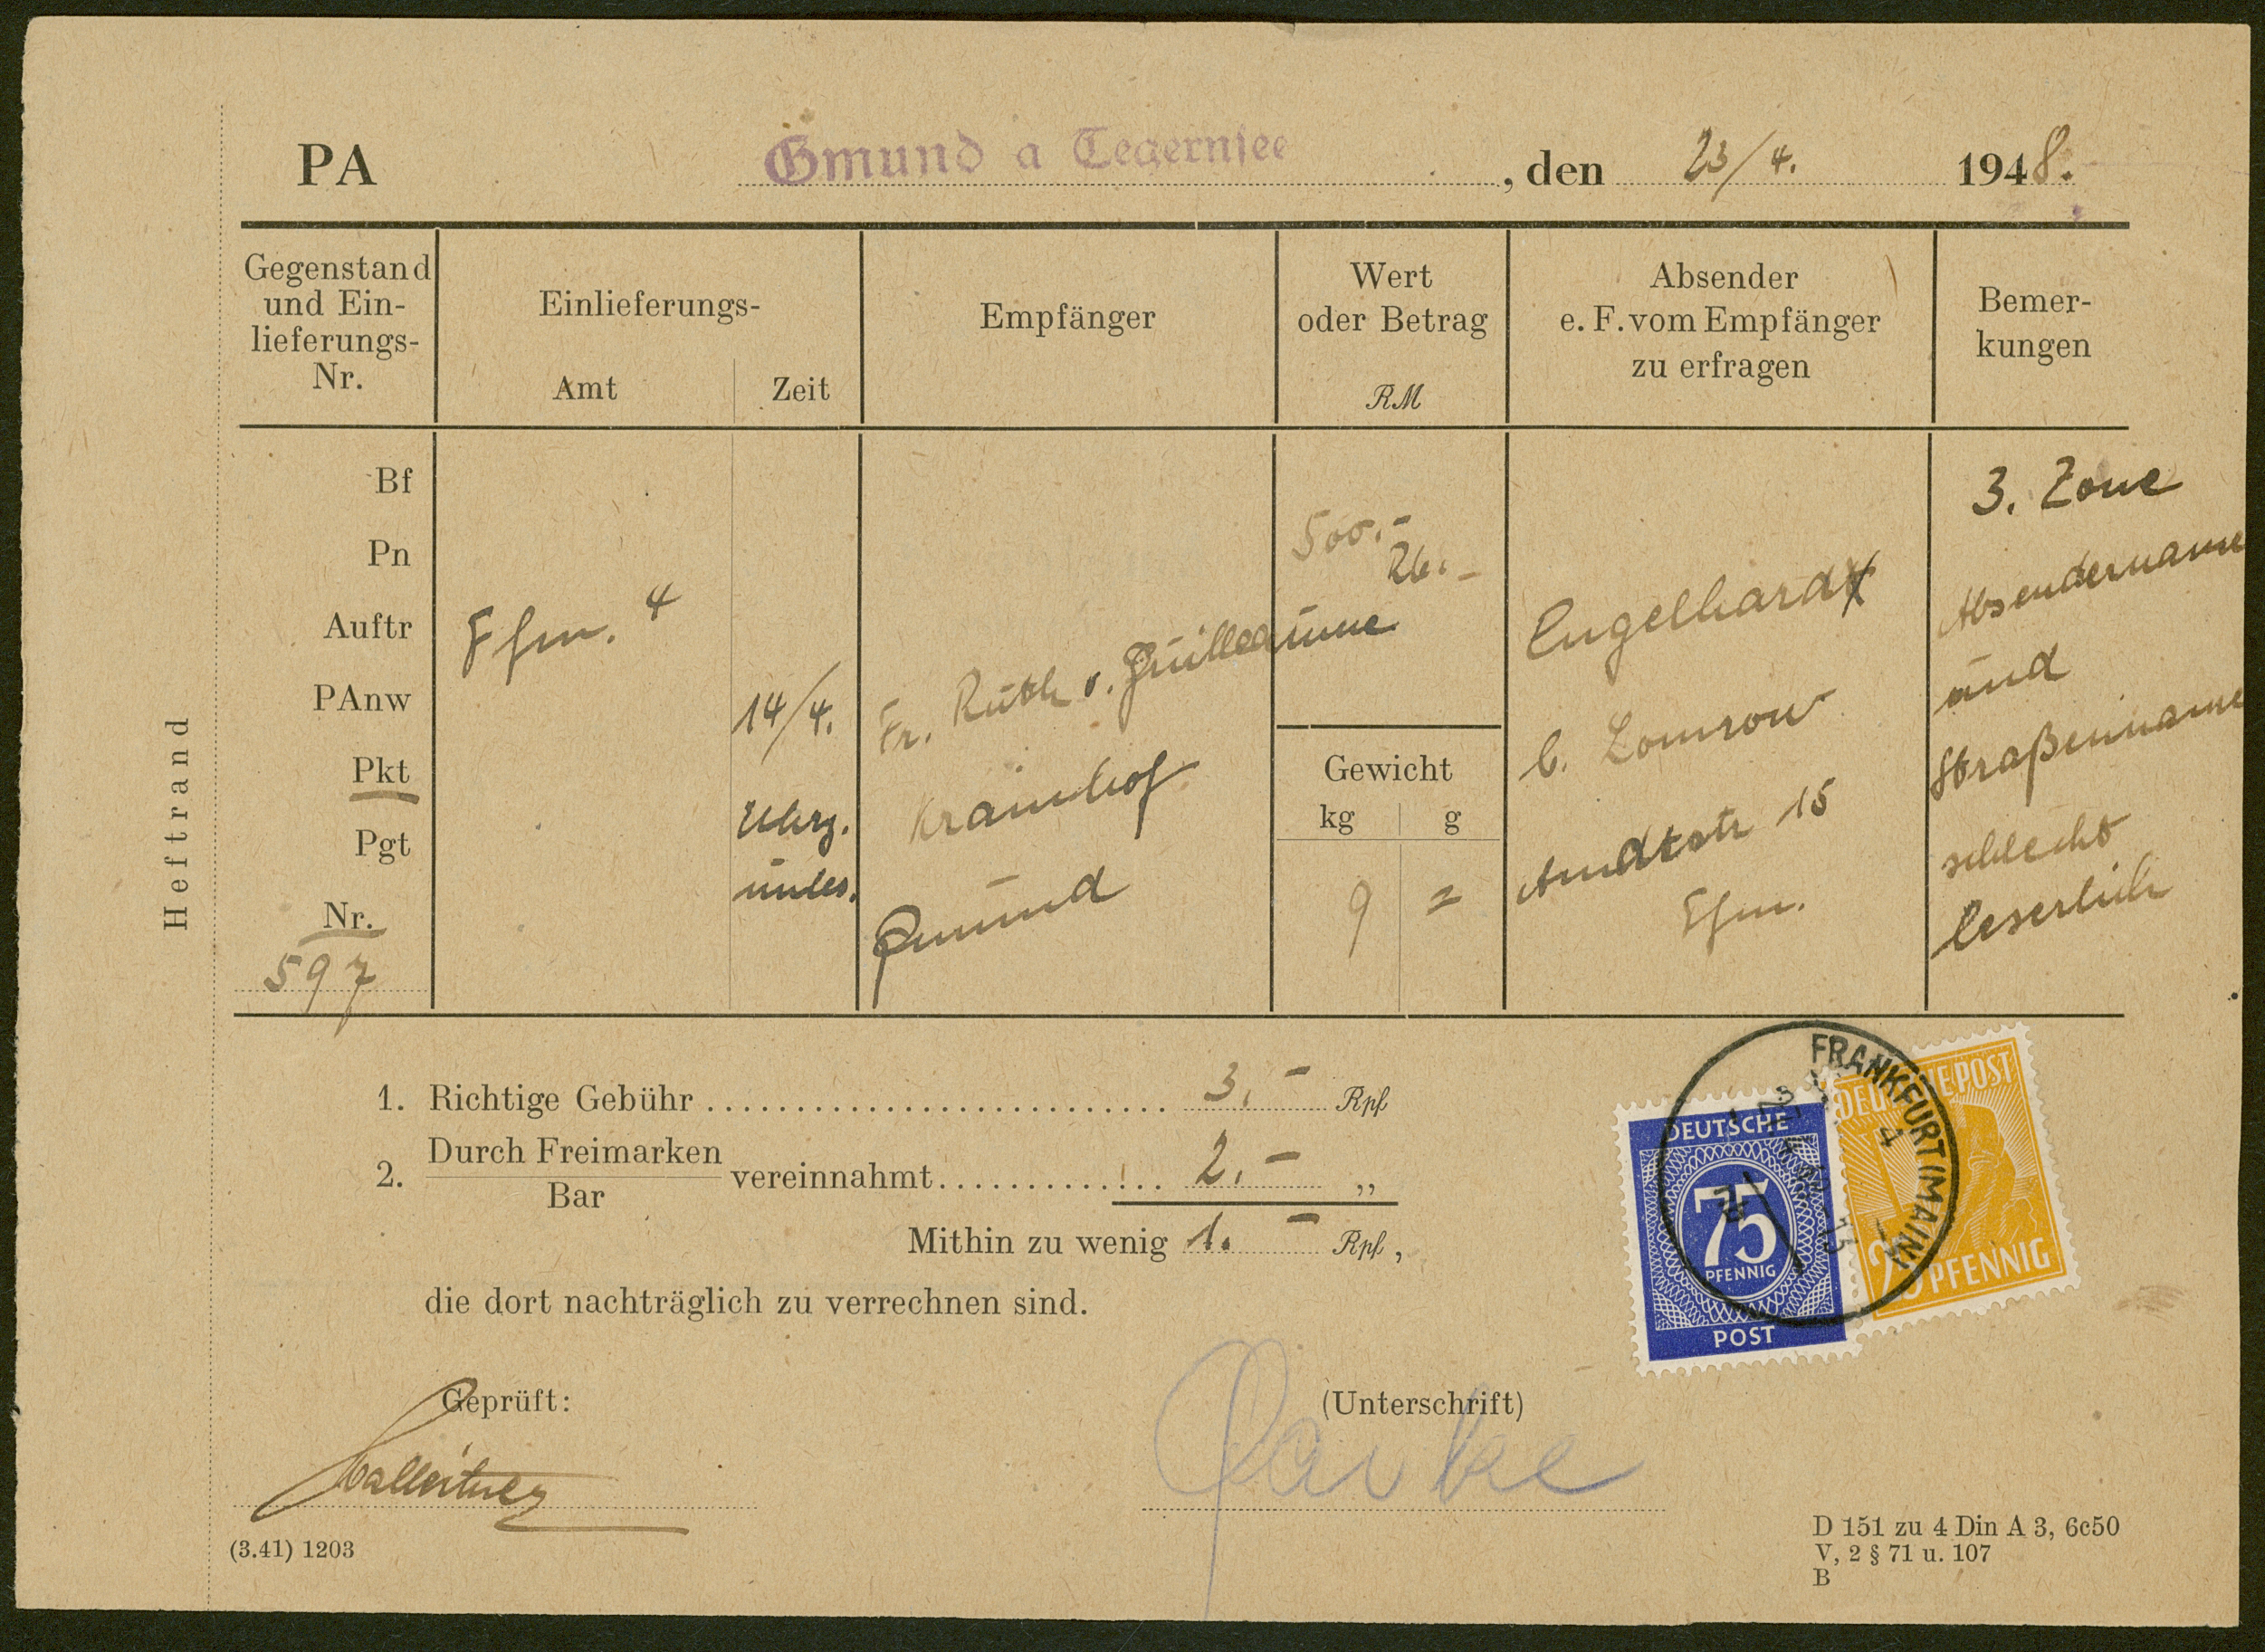 PA
Gmund a Tegernsee , den 23/4. 1948.
Gegenstand und Ein- lieferungs- Nr.
Einlieferungs-
Amt
Zeit
Empfänger
Wert
oder Betrag
RM
Absender
e. F. vom Empfänger
zu erfragen
Bemer-
kungen
Bf
Pn
Auftr
PAnw
Pkt
Pgt
Nr.
597
Ffm. 4
14/4.
Uhrz.
unles.
Fr. Ruth v. Guilleaume
Krainhof
Gmund
500.-
Gewicht
kg g
9 =
Engelhardt
b. Lomrow
Arndtstr 15
Ffm.
3. Zone
Absendername
und
Straßenname
schlecht
leserlich
Heftrand
1. Richtige Gebühr 3.- Rpf
2. Durch Freimarken
Bar
vereinnahmt 2.- „
Mithin zu wenig 1.- Rpf,
die dort nachträglich zu verrechnen sind.
DEUTSCHE
75
PFENNIG
POST
DEUTSCHE POST
25 PFENNIG
FRANKFURT (MAIN)
4
Geprüft:
(Unterschrift)
(3.41) 1203
D 151 zu 4 Din A 3, 6c50
V, 2 § 71 u. 107
B